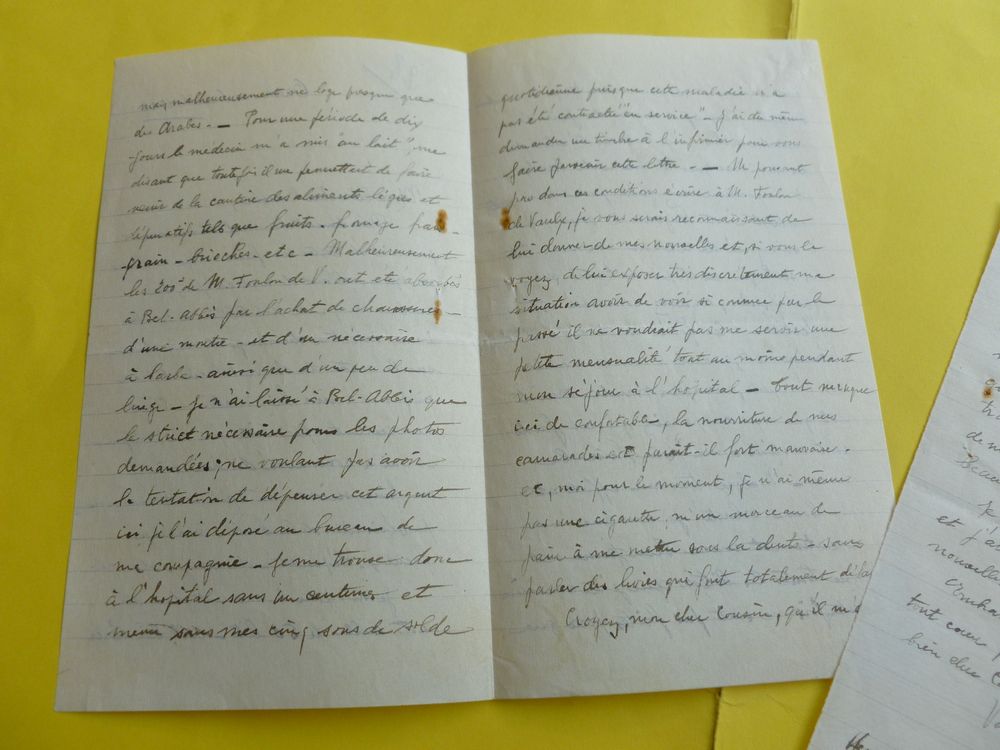 mais malheureusement ne loge presque que
des Arabes. — Pour une période de dix
jours le medecin m'a mis "au lait", me
disant que toutefois il me permettait de faire
venir de la cantine des aliments légers et
dépuratifs tels que fruits. fromage pain-
grain - brioches - etc - Malheureusement
les 200f de M. Foulon de V. ont été absorbés
à Bel-Abbès par l'achat de chaussures -
d'une montre - et d'un nécessaire
à barbe - ainsi que d'un peu de
linge - Je n'ai laissé à Bel-Abbès que
le strict nécessaire pour les photos
demandées; ne voulant pas avoir
la tentation de dépenser cet argent
ici je l'ai déposé au bureau de
ma compagnie - Je me trouve donc
à l'hopital sans un centime et
même sans mes cinq sous de solde
quotidienne puisque cette maladie n'a
pas été contractée "en service" - J'ai du même
demander un timbre à l'infirmier pour vous
faire parvenir cette lettre. — Ne pouvant
pas dans ces conditions écrire à M. Foulon
de Vaulx, je vous serais reconnaissant de
lui donner de mes nouvelles et, si vous le
voyez, de lui exposer très discrètement ma
situation avoir de voir si comme par le
passé il ne voudrait pas me servir une
petite mensualité tout au moins pendant
mon séjour à l'hopital - Tout manque
ici de confortable, la nourriture de mes
camarades est parait-il fort mauvaise.
et, moi pour le moment, je n'ai même
pas une cigarette, ni un morceau de
pain à me mettre sous la dent - sans
parler des livres qui font totalement défaut
Croyez, mon cher Cousin, qu'il m'e
tr
de n
K
j'ai
et
nouvelle
tout cœur
bien cher C